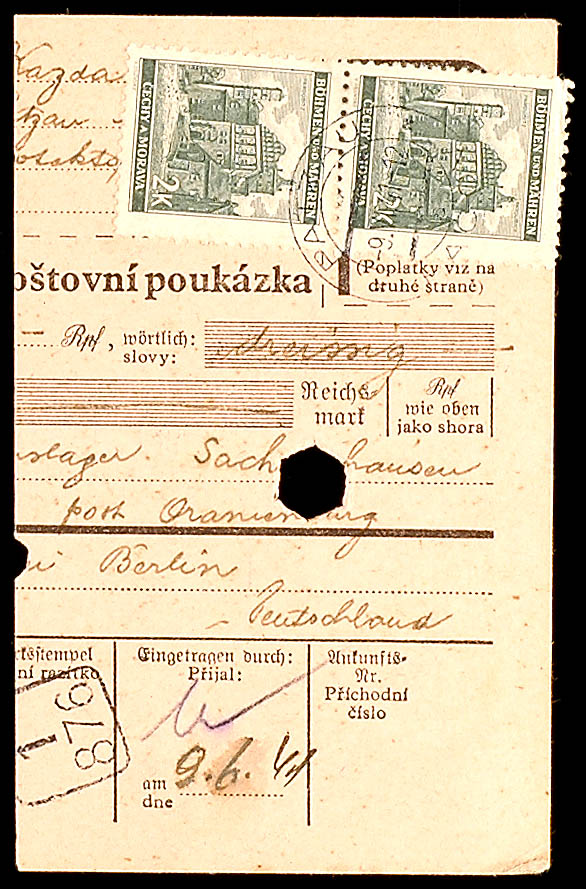 Kazda
BÖHMEN UND MÄHREN
ČECHY A MORAVA
2K
BÖHMEN UND MÄHREN
ČECHY A MORAVA
2K
oštovní poukázka
(Poplatky viz na
druhé straně)
— Rpf, wörtlich:
slovy:
dreissig —
Reichs
mark
Rpf
wie oben
jako shora
slager Sach hausen
post Oranienburg
i Berlin
- Deutschland
rtsstempel
ní razítko
Eingetragen durch:
Přijal:
Ankunfts-
Nr.
Příchodní
číslo
928
1
am
dne
9.6.41